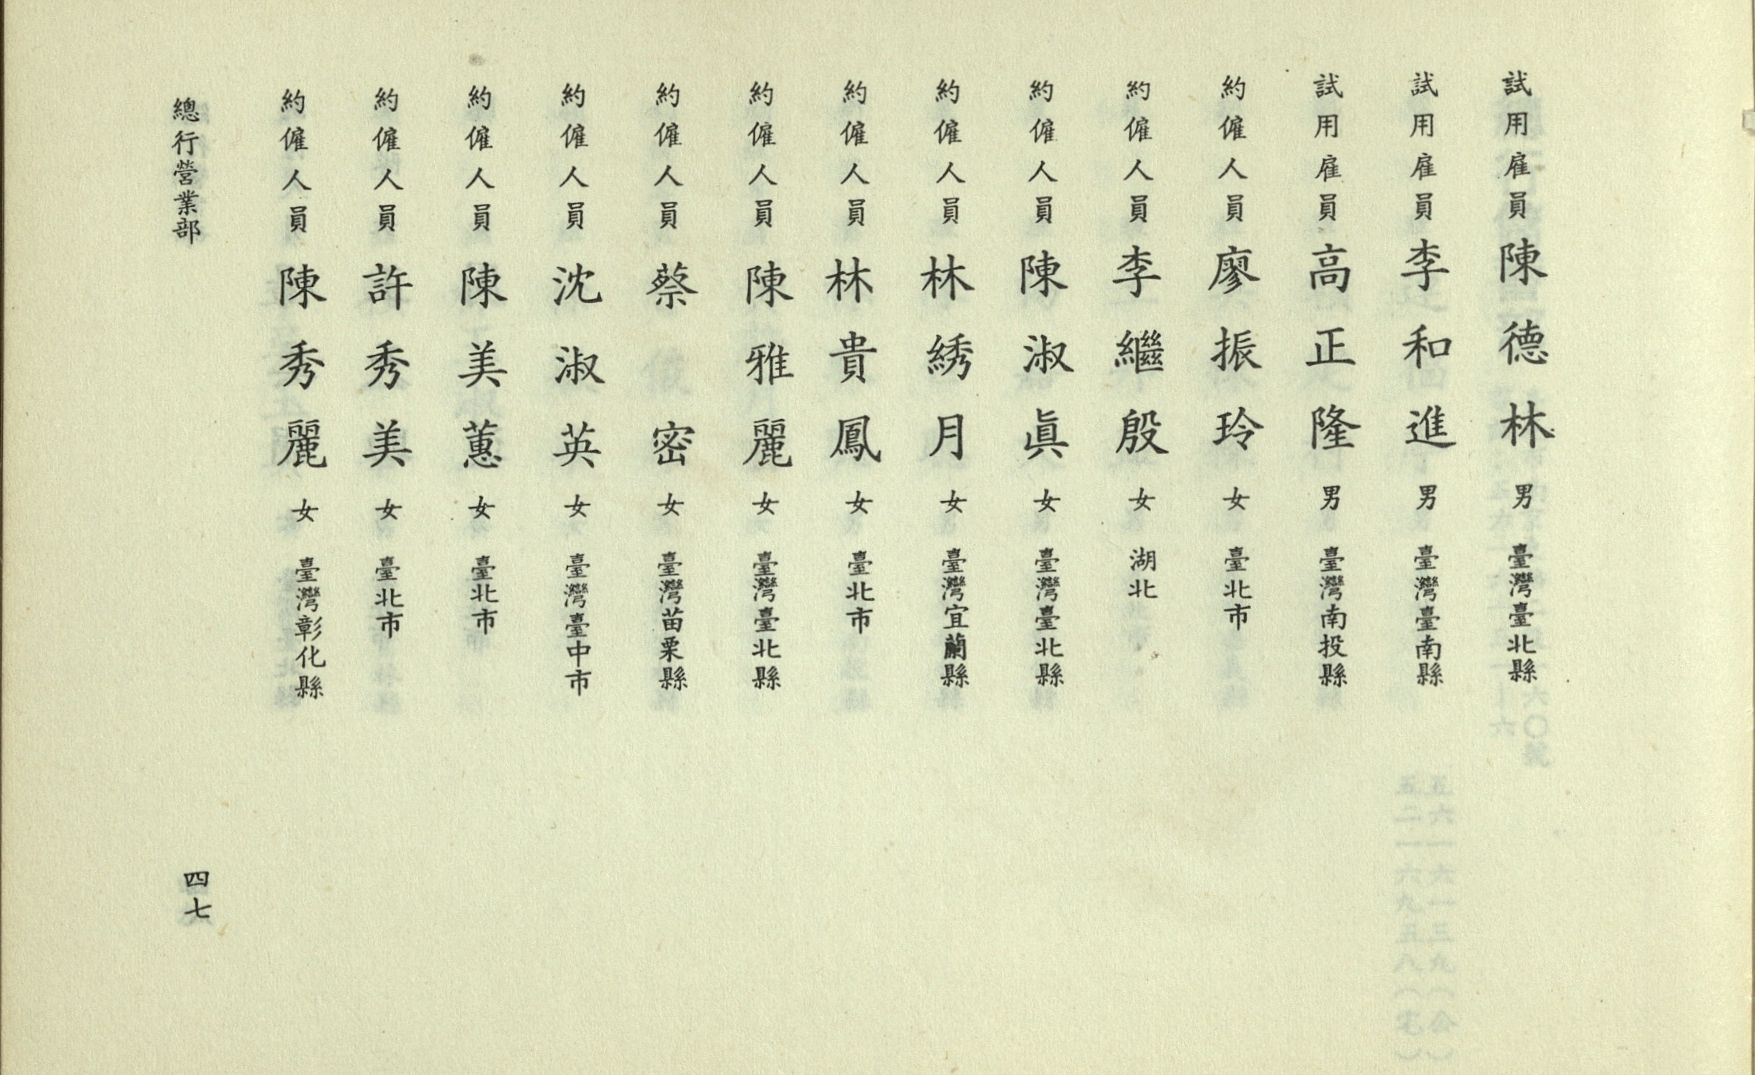 試用雇員陳德林男臺灣臺北縣
試用雇員李和進男臺灣臺南縣
試用雇員高正隆男臺灣南投縣
約僱人員廖振玲女臺北市
約僱人員李繼殷女湖北
約僱人員陳淑眞女臺灣臺北縣
約僱人員林綉月女臺灣宜蘭縣
約僱人員林貴鳳女臺北市
約僱人員陳雅麗女臺灣臺北縣
約僱人員蔡密女臺灣苗栗縣
約僱人員沈淑英女臺灣臺中市
約僱人員陳美蕙女臺北市
約僱人員許秀美女臺北市
約僱人員陳秀麗女臺灣彰化縣
總行營業部
四七